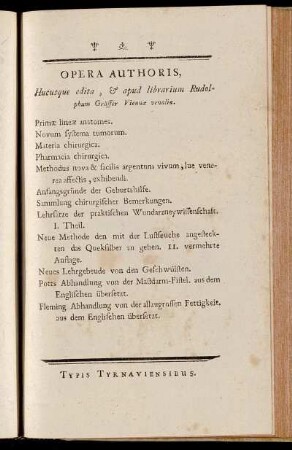 OPERA AUTHORIS,
Hucusque edita, & apud librarium Rudol-
phum Gräffer Viennæ venalia.
Primæ lineæ anatomes.
Novum systema tumorum.
Materia chirurgica.
Pharmacia chirurgica.
Methodus nova & facilis argentum vivum, lue vene-
rea affectis, exhibendi.
Anfangsgründe der Geburtshilfe.
Sammlung chirurgischer Bemerkungen.
Lehrsätze der praktischen Wundarzneywissenschaft.
I. Theil.
Neue Methode den mit der Lustseuche angesteck-
ten das Queksilber zu geben. II. vermehrte
Auflage.
Neues Lehrgebeude von den Geschwülsten.
Potts Abhandlung von der Mastdarm-Fistel. aus dem
Englischen übersetzt.
Fleming Abhandlung von der allzugrossen Fettigkeit.
aus dem Englischen übersetzt.
TYPIS TYRNAVIENSIBUS.